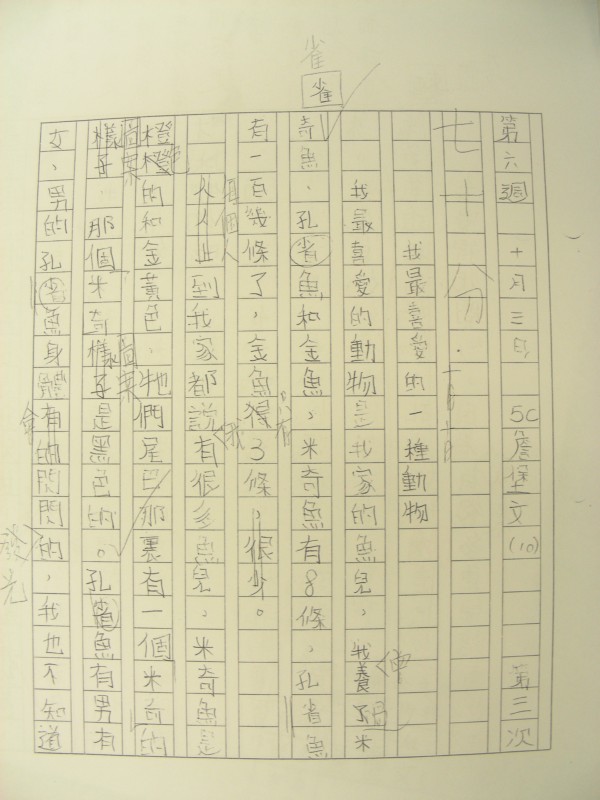 雀
雀
第六週 十月三日 5C 詹堡文(10) 第三次
七十分
我最喜愛的一種動物
我最喜愛的動物是我家的魚兒,我養了米
奇魚、孔省魚和金魚,米奇魚有8條,孔省魚
有一百幾條了,金魚得3條,很少。
只有
人人止到我家都說有很多魚兒,米奇魚是
每個人
橙橙的和金黃色,牠們尾巴那裏有一個米奇的
色
樣子,那個米奇樣子是黑色的。孔省魚有男有
圖案
圖案
女,男的孔省魚身體有的閃閃的,我也不知道
會
發光